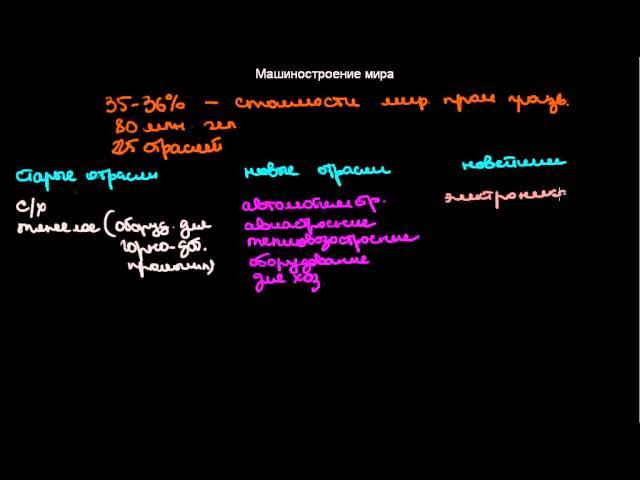 Машиностроение мира
35-36% — стоимости мир. пром произв.
80 млн. чел.
25 отраслей
старые отрасли новые отрасли новейшие
с/х автомобилестр. электроник
тяжелое (оборуд. для авиастроение
горно-доб. тепловозостроение
промышл.) оборудование
для хоз